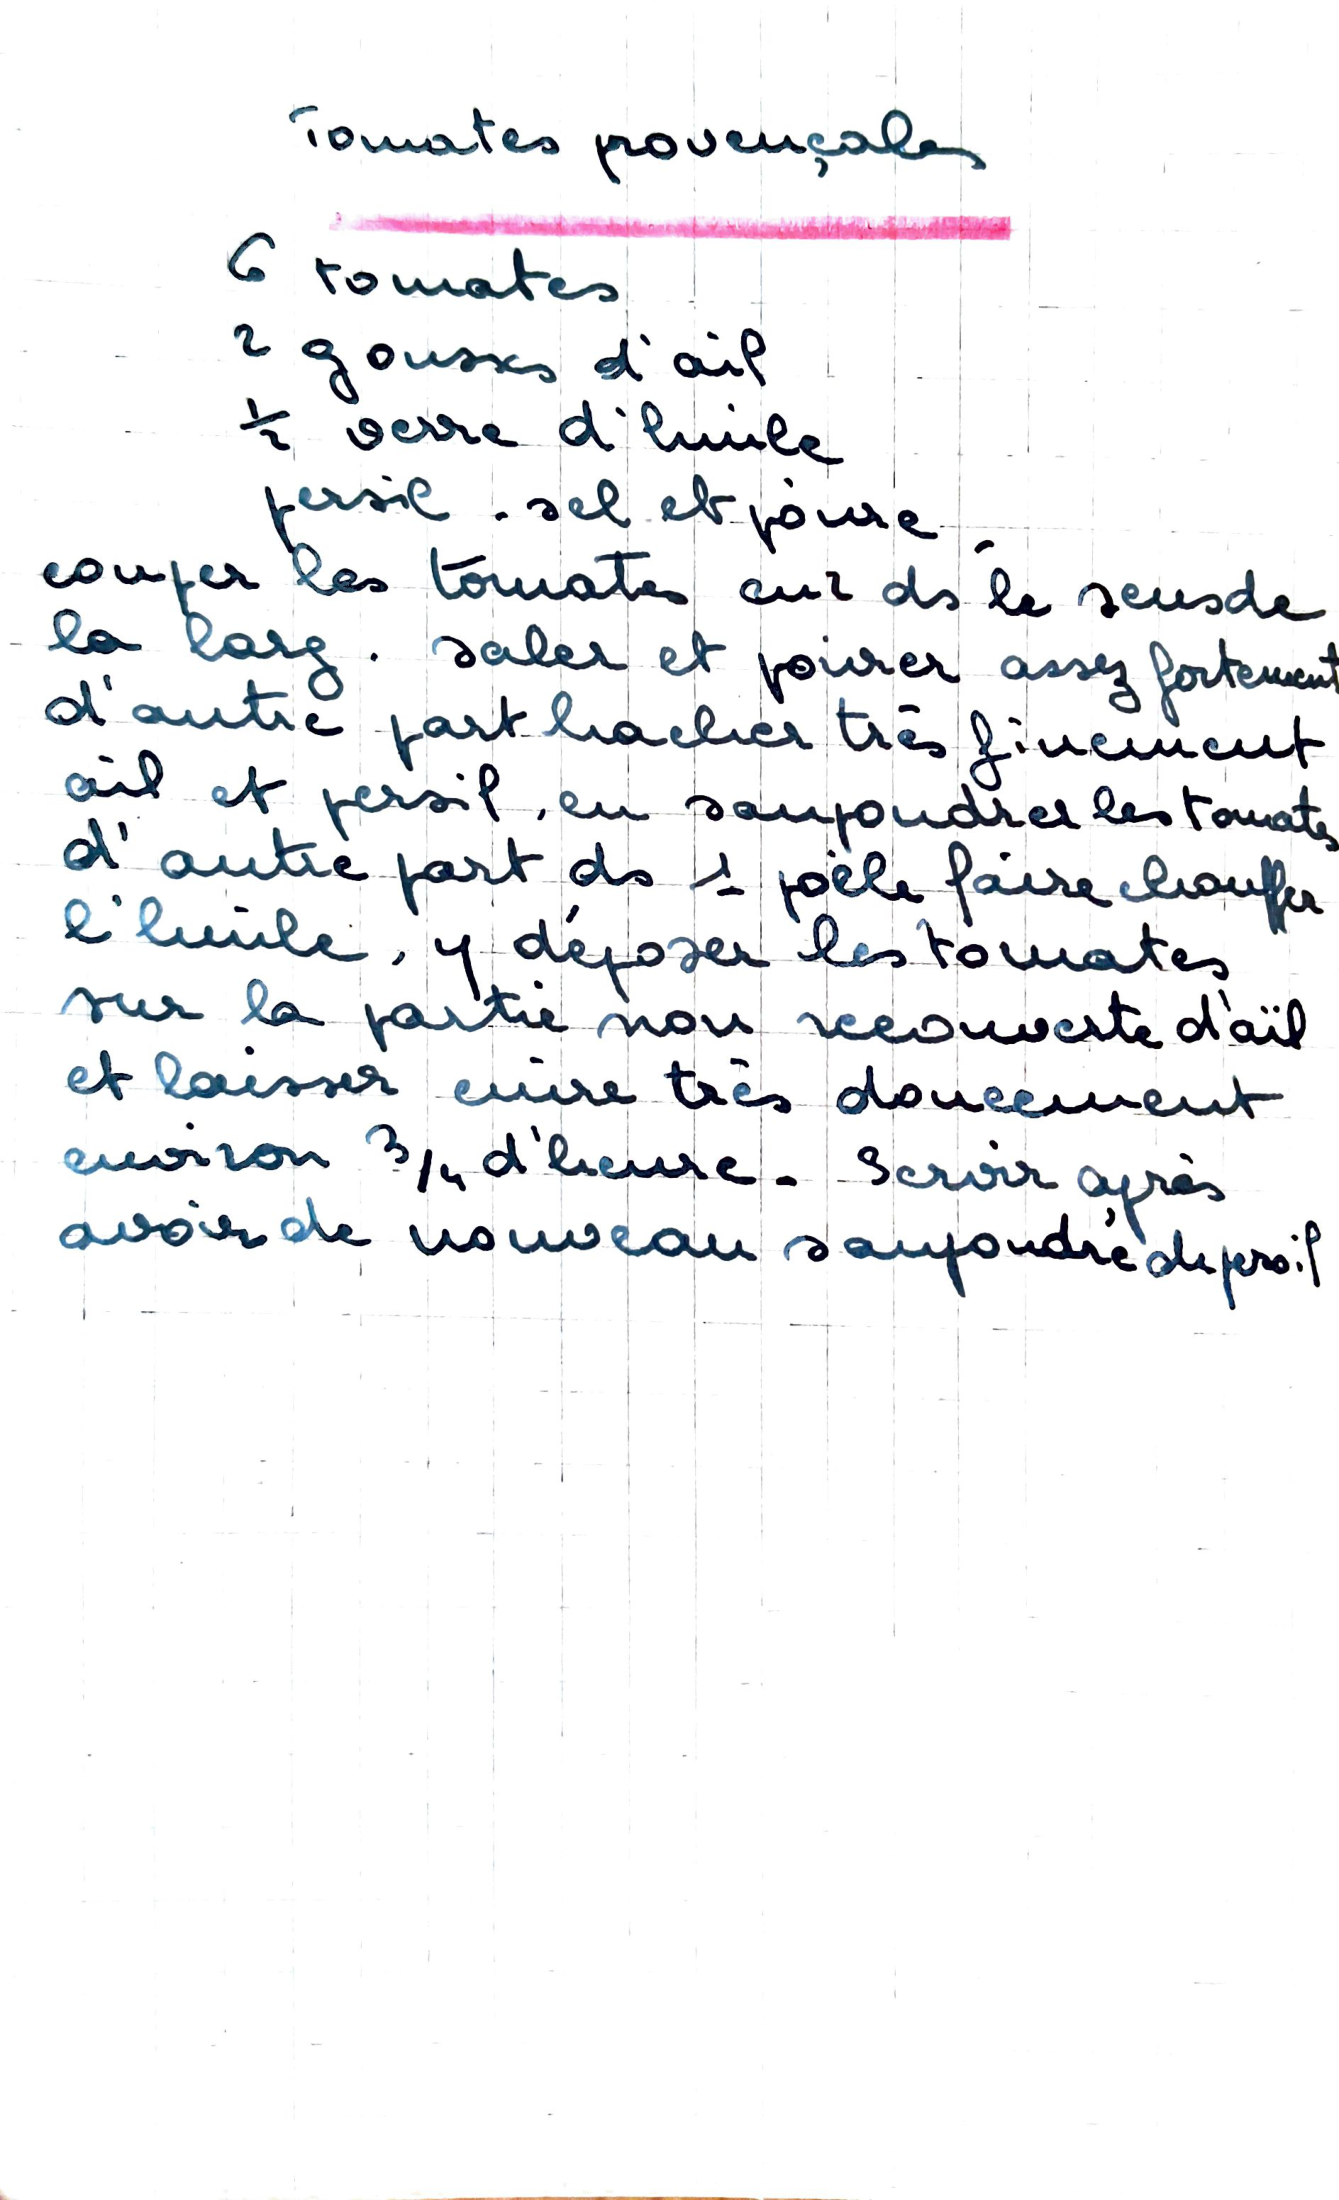 Tomates provençales
6 tomates
2 gousses d'ail
1/2 verre d'huile
persil. sel et poivre
couper les tomates en 2 ds le sens de
la larg. saler et poivrer assez fortement
d'autre part hacher très finement
ail et persil, en saupoudrer les tomates
d'autre part ds 1 poële faire chauffer
l'huile, y déposer les tomates
sur la partie non recouverte d'aïl
et laisser cuire très doucement
environ 3/4 d'heure. Servir après
avoir de nouveau saupoudré de persil